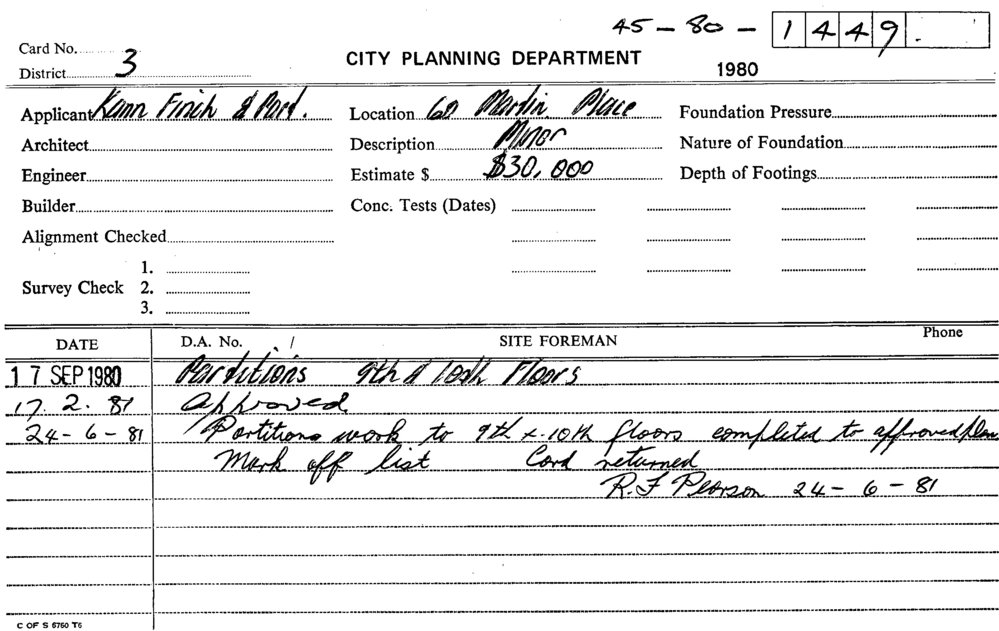 45 - 80 - 1449.
Card No.
District 3
CITY PLANNING DEPARTMENT
1980
Applicant Kann Finch & Part.
Location 60 Martin Place
Foundation Pressure
Architect
Description Minor
Nature of Foundation
Engineer
Estimate $ $30,000
Depth of Footings
Builder
Conc. Tests (Dates)
Alignment Checked
1.
Survey Check 2.
3.
DATE D.A. No. / SITE FOREMAN Phone
17 SEP 1980 Partitions 9th & 10th Floors
17. 2. 81 Approved
24-6-81 Partitions work to 9th & 10th floors completed to approved plan
Mark off list Card returned
R.F Pearson 24-6-81
C OF S 6760 T6